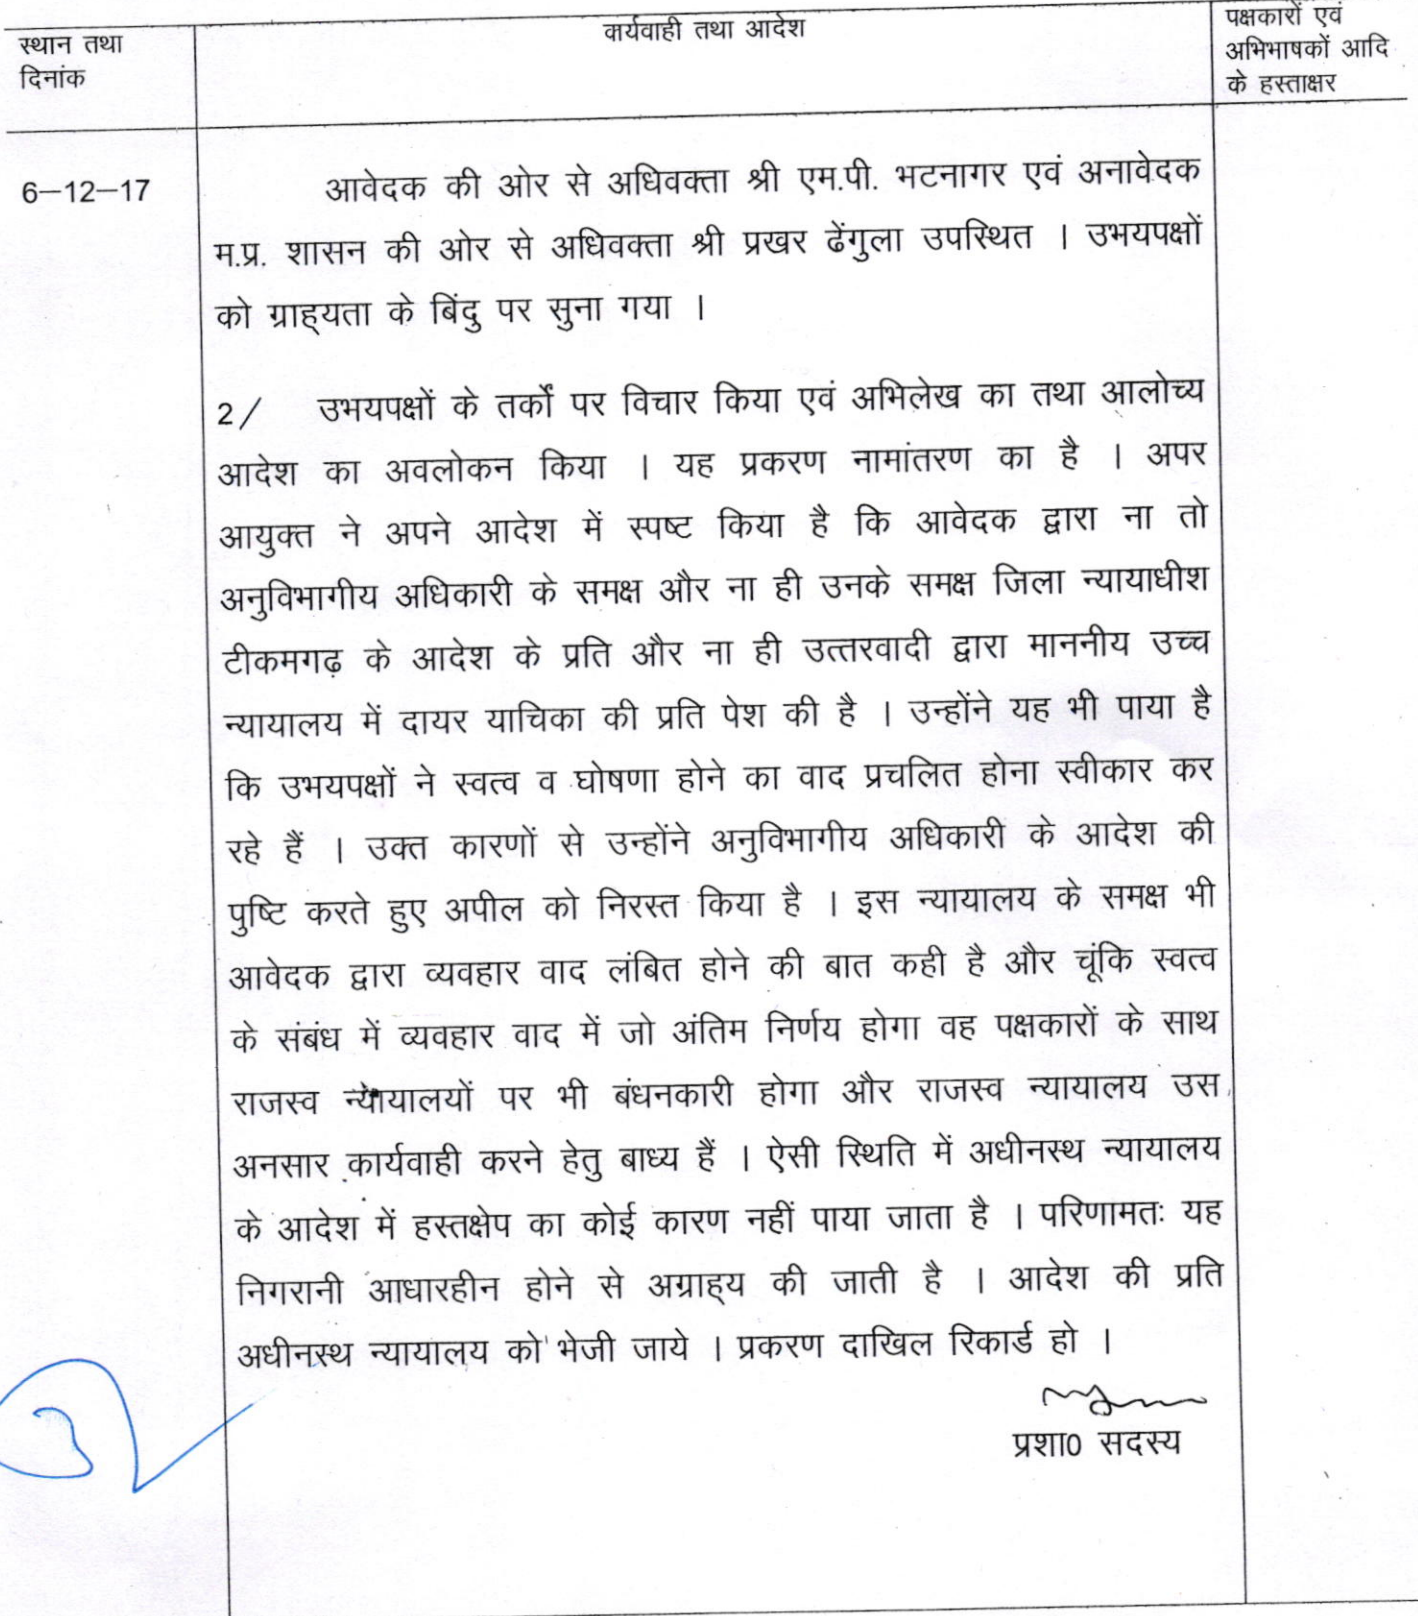 स्थान तथा
दिनांक
कार्यवाही तथा आदेश
पक्षकारों एवं
अभिभाषकों आदि
के हस्ताक्षर
6–12–17
आवेदक की ओर से अधिवक्ता श्री एम.पी. भटनागर एवं अनावेदक
म.प्र. शासन की ओर से अधिवक्ता श्री प्रखर ढेंगुला उपस्थित । उभयपक्षों
को ग्राह्यता के बिंदु पर सुना गया ।
2/ उभयपक्षों के तर्कों पर विचार किया एवं अभिलेख का तथा आलोच्य
आदेश का अवलोकन किया । यह प्रकरण नामांतरण का है । अपर
आयुक्त ने अपने आदेश में स्पष्ट किया है कि आवेदक द्वारा ना तो
अनुविभागीय अधिकारी के समक्ष और ना ही उनके समक्ष जिला न्यायाधीश
टीकमगढ़ के आदेश के प्रति और ना ही उत्तरवादी द्वारा माननीय उच्च
न्यायालय में दायर याचिका की प्रति पेश की है । उन्होंने यह भी पाया है
कि उभयपक्षों ने स्वत्व व घोषणा होने का वाद प्रचलित होना स्वीकार कर
रहे हैं । उक्त कारणों से उन्होंने अनुविभागीय अधिकारी के आदेश की
पुष्टि करते हुए अपील को निरस्त किया है । इस न्यायालय के समक्ष भी
आवेदक द्वारा व्यवहार वाद लंबित होने की बात कही है और चूंकि स्वत्व
के संबंध में व्यवहार वाद में जो अंतिम निर्णय होगा वह पक्षकारों के साथ
राजस्व न्यायालयों पर भी बंधनकारी होगा और राजस्व न्यायालय उस
अनसार कार्यवाही करने हेतु बाध्य हैं । ऐसी स्थिति में अधीनस्थ न्यायालय
के आदेश में हस्तक्षेप का कोई कारण नहीं पाया जाता है । परिणामतः यह
निगरानी आधारहीन होने से अग्राह्य की जाती है । आदेश की प्रति
अधीनस्थ न्यायालय को भेजी जाये । प्रकरण दाखिल रिकार्ड हो ।
प्रशा0 सदस्य